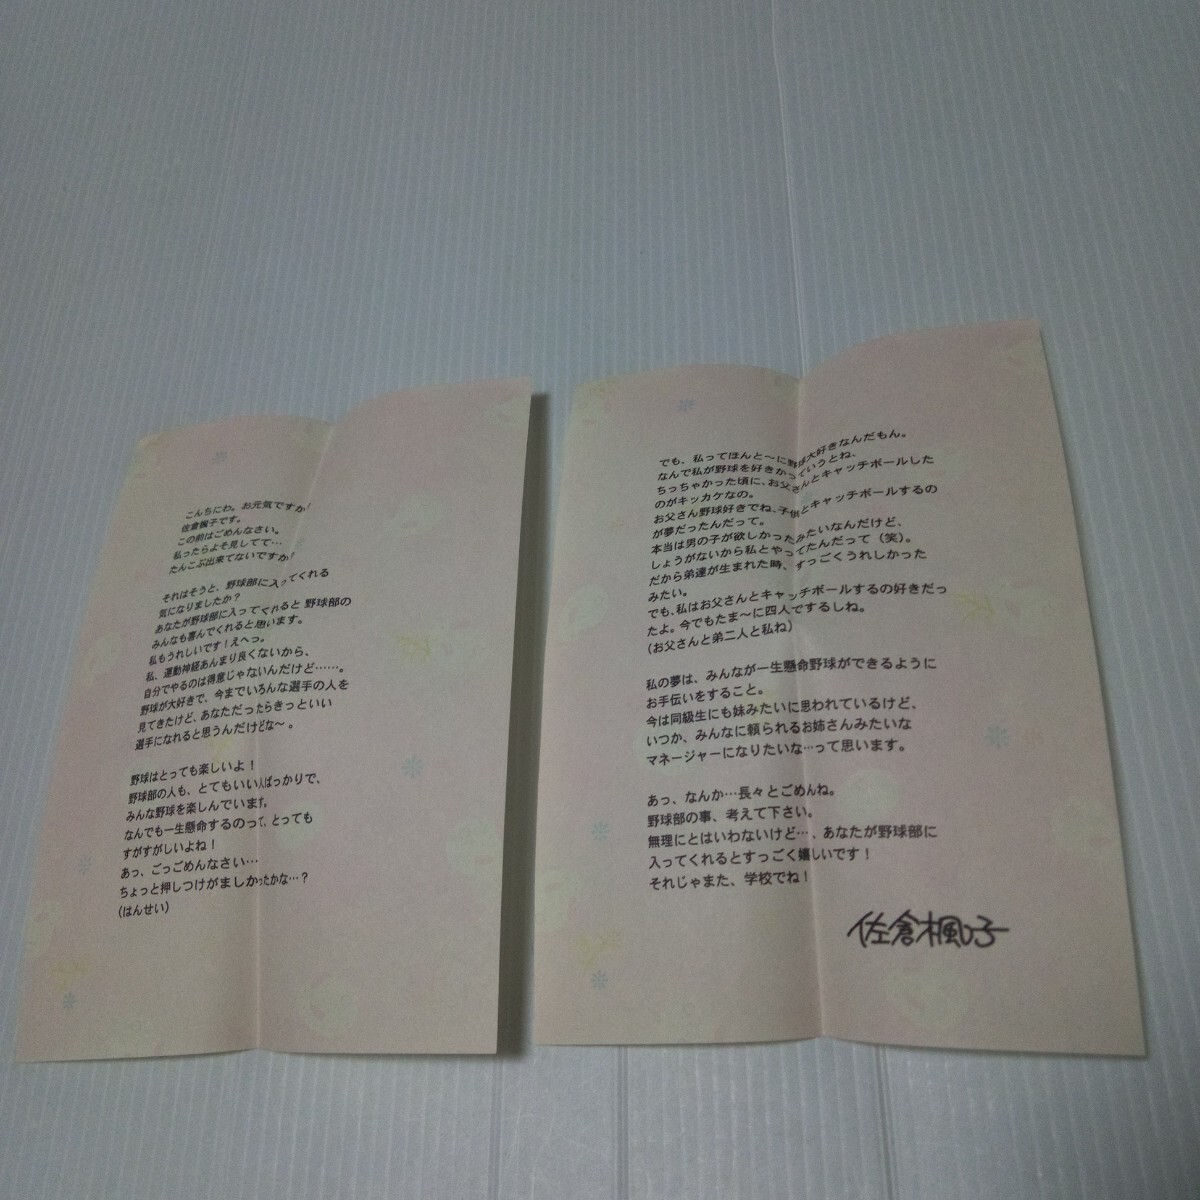 こんちにわ。お元気ですか!
佐倉楓子です。
この前はごめんなさい。
私ったらよそ見してて…
たんこぶ出来てないですか!
それはそうと、野球部に入ってくれる
気になりましたか?
あなたが野球部に入ってくれると野球部の
みんなも喜んでくれると思います。
私もうれしいです!えへっ。
私、運動神経あんまり良くないから、
自分でやるのは得意じゃないんだけど……。
野球が大好きで、今までいろんな選手の人を
見てきたけど、あなただったらきっといい
選手になれると思うんだけどな〜。
野球はとっても楽しいよ!
野球部の人も、とてもいい人ばっかりで、
みんな野球を楽しんでいます。
なんでも一生懸命するのって、とっても
すがすがしいよね!
あっ、ごっごめんなさい…
ちょっと押しつけがましかったかな…?
(はんせい)
でも、私ってほんと〜に野球大好きなんだもん。
なんで私が野球を好きかっていうとね、
ちっちゃかった頃に、お父さんとキャッチボールした
のがキッカケなの。
お父さん野球好きでね、子供とキャッチボールするの
が夢だったんだって。
本当は男の子が欲しかったみたいなんだけど、
しょうがないから私とやってたんだって(笑)。
だから弟達が生まれた時、すっごくうれしかった
みたい。
でも、私はお父さんとキャッチボールするの好きだっ
たよ。今でもたま〜に四人でするしね。
(お父さんと弟二人と私ね)
私の夢は、みんなが一生懸命野球ができるように
お手伝いをすること。
今は同級生にも妹みたいに思われているけど、
いつか、みんなに頼られるお姉さんみたいな
マネージャーになりたいな…って思います。
あっ、なんか…長々とごめんね。
野球部の事、考えて下さい。
無理にとはいわないけど…、あなたが野球部に
入ってくれるとすっごく嬉しいです!
それじゃまた、学校でね!
佐倉楓子